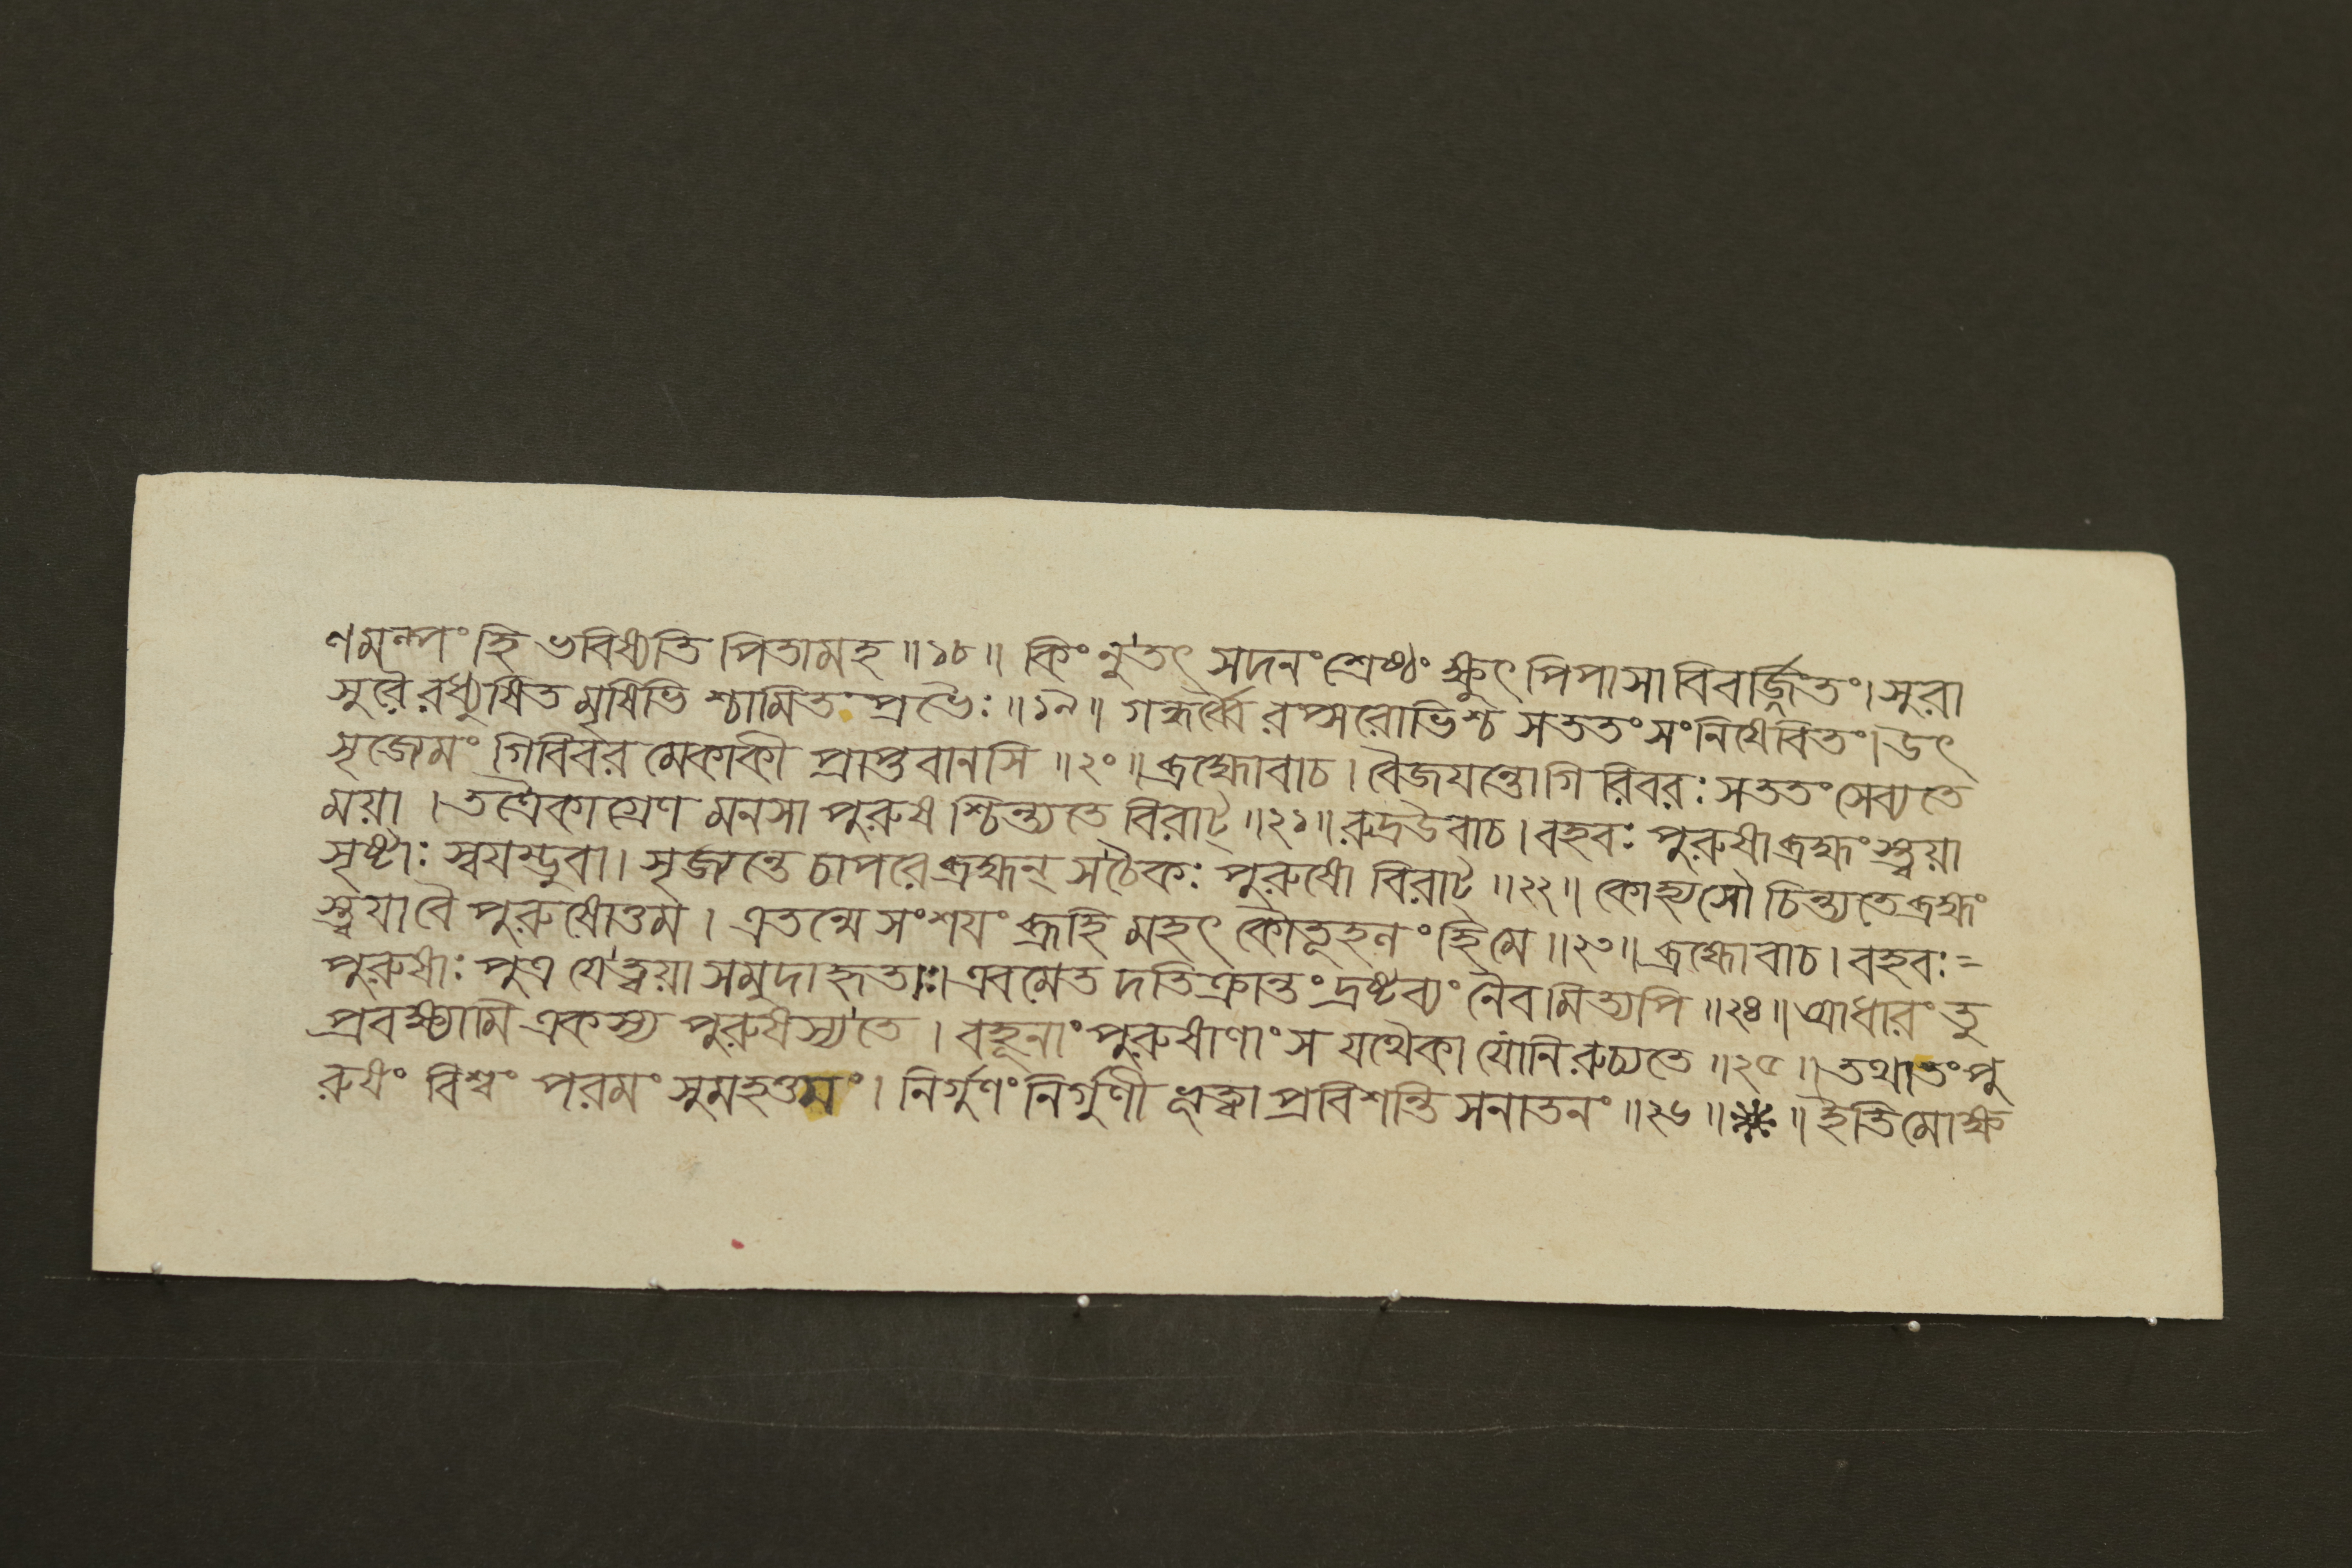 ণমল্পং হি ভবিষ্যতি পিতামহ ॥১৮॥ কিং নু তৎ সদনং শ্রেষ্ঠং ক্ষুৎ পিপাসা বিবর্জ্জিতং। সুরা
সুরৈ রধ্যুষিত মৃষিভি শ্চামিত প্রভৈঃ ॥১৯॥ গন্ধর্ব্বৈ রপ্সরোভিশ্চ সততং সংনিষেবিতং। উৎ
সৃজেমং গিরিবর মেকাকী প্রাপ্তবানসি ॥২০॥ ব্রহ্মোবাচ। বৈজয়ন্তো গিরিবরঃ সততং সেব্যতে
ময়া । তত্রৈকাগ্রেণ মনসা পুরুষ শ্চিন্ত্যতে বিরাট্ ॥২১॥ রুদ্রউবাচ। বহবঃ পুরুষা ব্রহ্মংস্ত্বয়া
সৃষ্টাঃ স্বয়ম্ভুবা। সৃজ্যন্তে চাপরে ব্রহ্মন্ সচৈকঃ পুরুষো বিরাট্ ॥২২॥ কোহ্যসৌ চিন্ত্যতে ব্রহ্মং
স্ত্বয়া বৈ পুরুষোত্তম । এতন্মে সংশয়ং ব্রূহি মহৎ কৌতূহলং হি মে ॥২৩॥ ব্রহ্মোবাচ। বহবঃ =
পুরুষাঃ পুত্র যে ত্বয়া সমুদাহৃতাঃ। এবমেত দতিক্রান্তং দ্রষ্টব্যং নৈবমিত্যপি ॥২৪॥ আধারং তু
প্রবক্ষ্যামি একস্য পুরুষস্য তে । বহূনাং পুরুষাণাং স যথৈকা যোনি রুচ্যতে ॥২৫॥ তথা তং পু
রুষং বিশ্বং পরমং সুমহত্তমং। নির্গুণং নির্গুণী ভূত্বা প্রবিশন্তি সনাতনং ॥২৬॥❋॥ ইতি মোক্ষ